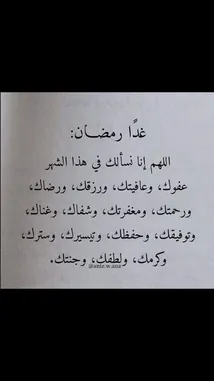 غدًا رمضان:
اللهم إنا نسألك في هذا الشهر
عفوك، وعافيتك، ورزقك، ورضاك،
ورحمتك، ومغفرتك، وشفاك، وغناك،
وتوفيقك، وحفظك، وتيسيرك، وسترك،
وكرمك، ولطفك، وجنتك.